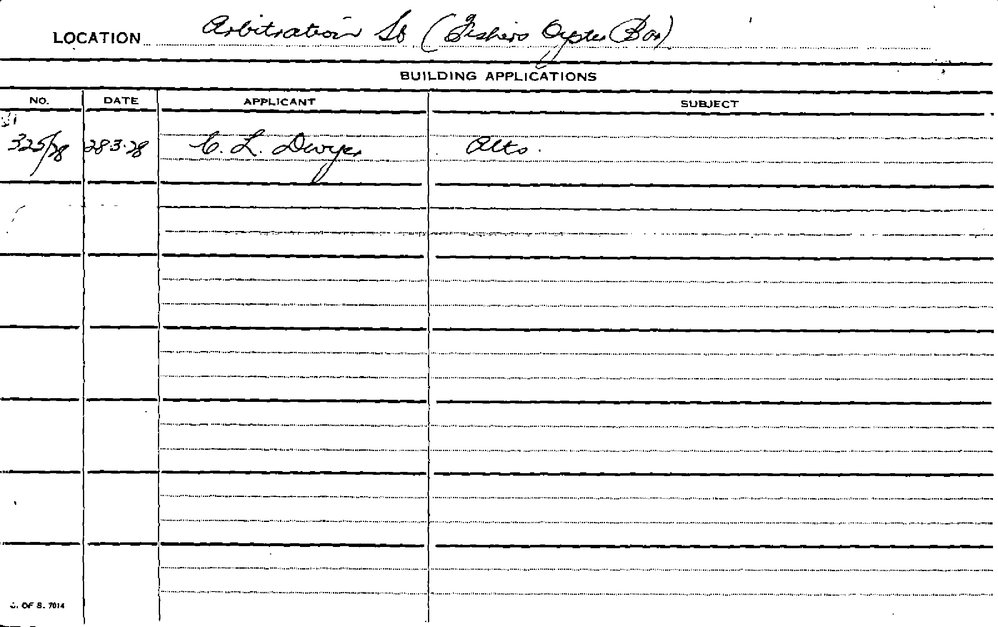 LOCATION Arbitration St (Fishers Oyster Bar)
BUILDING APPLICATIONS
NO. DATE APPLICANT SUBJECT
325/28 28.3.28 C. L. Dwyer Alts.
C. OF S. 7014